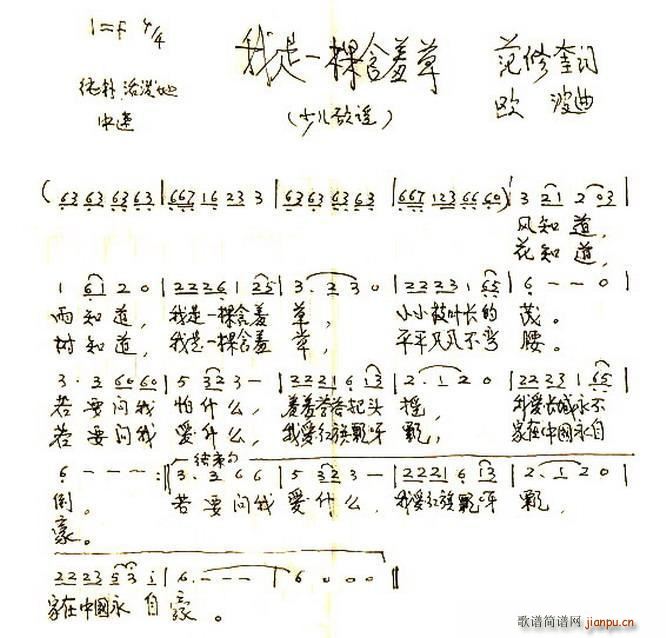 1=F 4/4
我是一棵含羞草
范修奎词
纯朴 活泼地
(少儿歌谣)
欧 波曲
中速
(63 63 63 63 | 667 16 23 3 | 63 63 63 63 | 667 123 66 60) | 3 21 2 03 |
风知道,
花知道,
1 61 2 0 | 2226 1 25 | 3. 2 3 0 | 2223 1 65 | 6 - - 0 |
雨知道, 我是一棵含羞 草, 小小枝叶长的 茂。
树知道, 我是一棵含羞 草, 平平风不弯 腰。
3. 2 60 60 | 5 32 3 - | 2221 6 13 | 2. 1 2 0 | 2223 1 65 |
若要问我 怕什么, 羞羞答答把头 摇, 我爱长城永不
若要问我 爱什么, 我爱红旗飘呀 飘, 家在中国永自
6 - - - :‖ 结束句 3. 2 6 6 | 5 32 3 - | 2221 6 13 | 2. 1 2 0 |
倒。 若要问我 爱什么, 我爱红旗飘呀 飘,
豪。
2223 53 i | 6. - - - | 6 0 0 0 ‖
家在中国永 自 豪。
歌谱简谱网
jianpu.cn